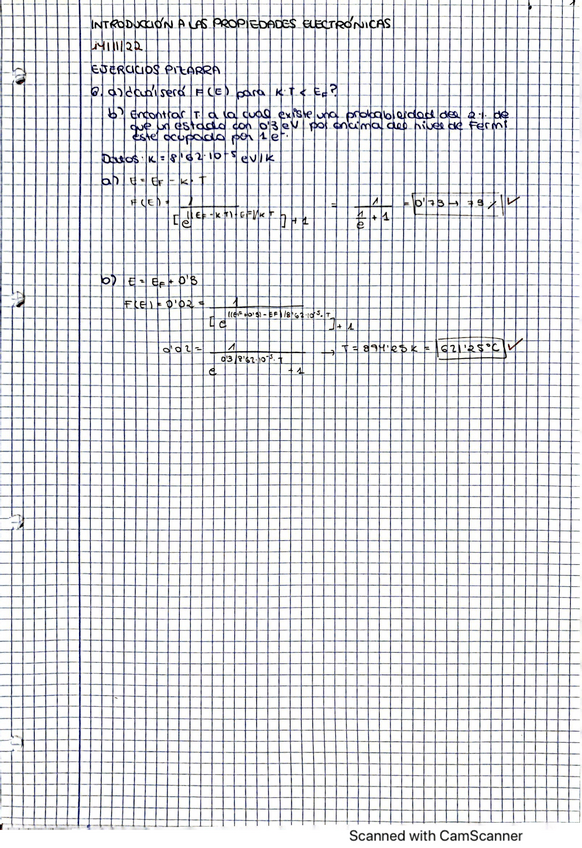 INTRODUCCIÓN A LAS PROPIEDADES ELECTRÓNICAS
14/11/22
EJERCICIOS PIZARRA
a) ¿Cuál será F(E) para K·T < EF?
b) Encontrar T a la cual existe una probabilidad del 2% de
que un estado con 0'3 eV por encima del nivel de Fermi
esté ocupado por 1 e⁻.
Datos: K = 8'62·10⁻⁵ eV/K
a) E = EF - K·T
F(E) = 1 / [e^((EF - KT) - EF)/KT] + 1 = 1 / 1/e + 1 = 0'73 → 73% ✓
b) E = EF + 0'3
F(E) = 0'02 = 1 / [e^((EF + 0'3) - EF)/8'62·10⁻⁵·T] + 1
0'02 = 1 / e^0'3/8'62·10⁻⁵·T + 1 → T = 894'25 K = 621'25°C ✓
Scanned with CamScanner